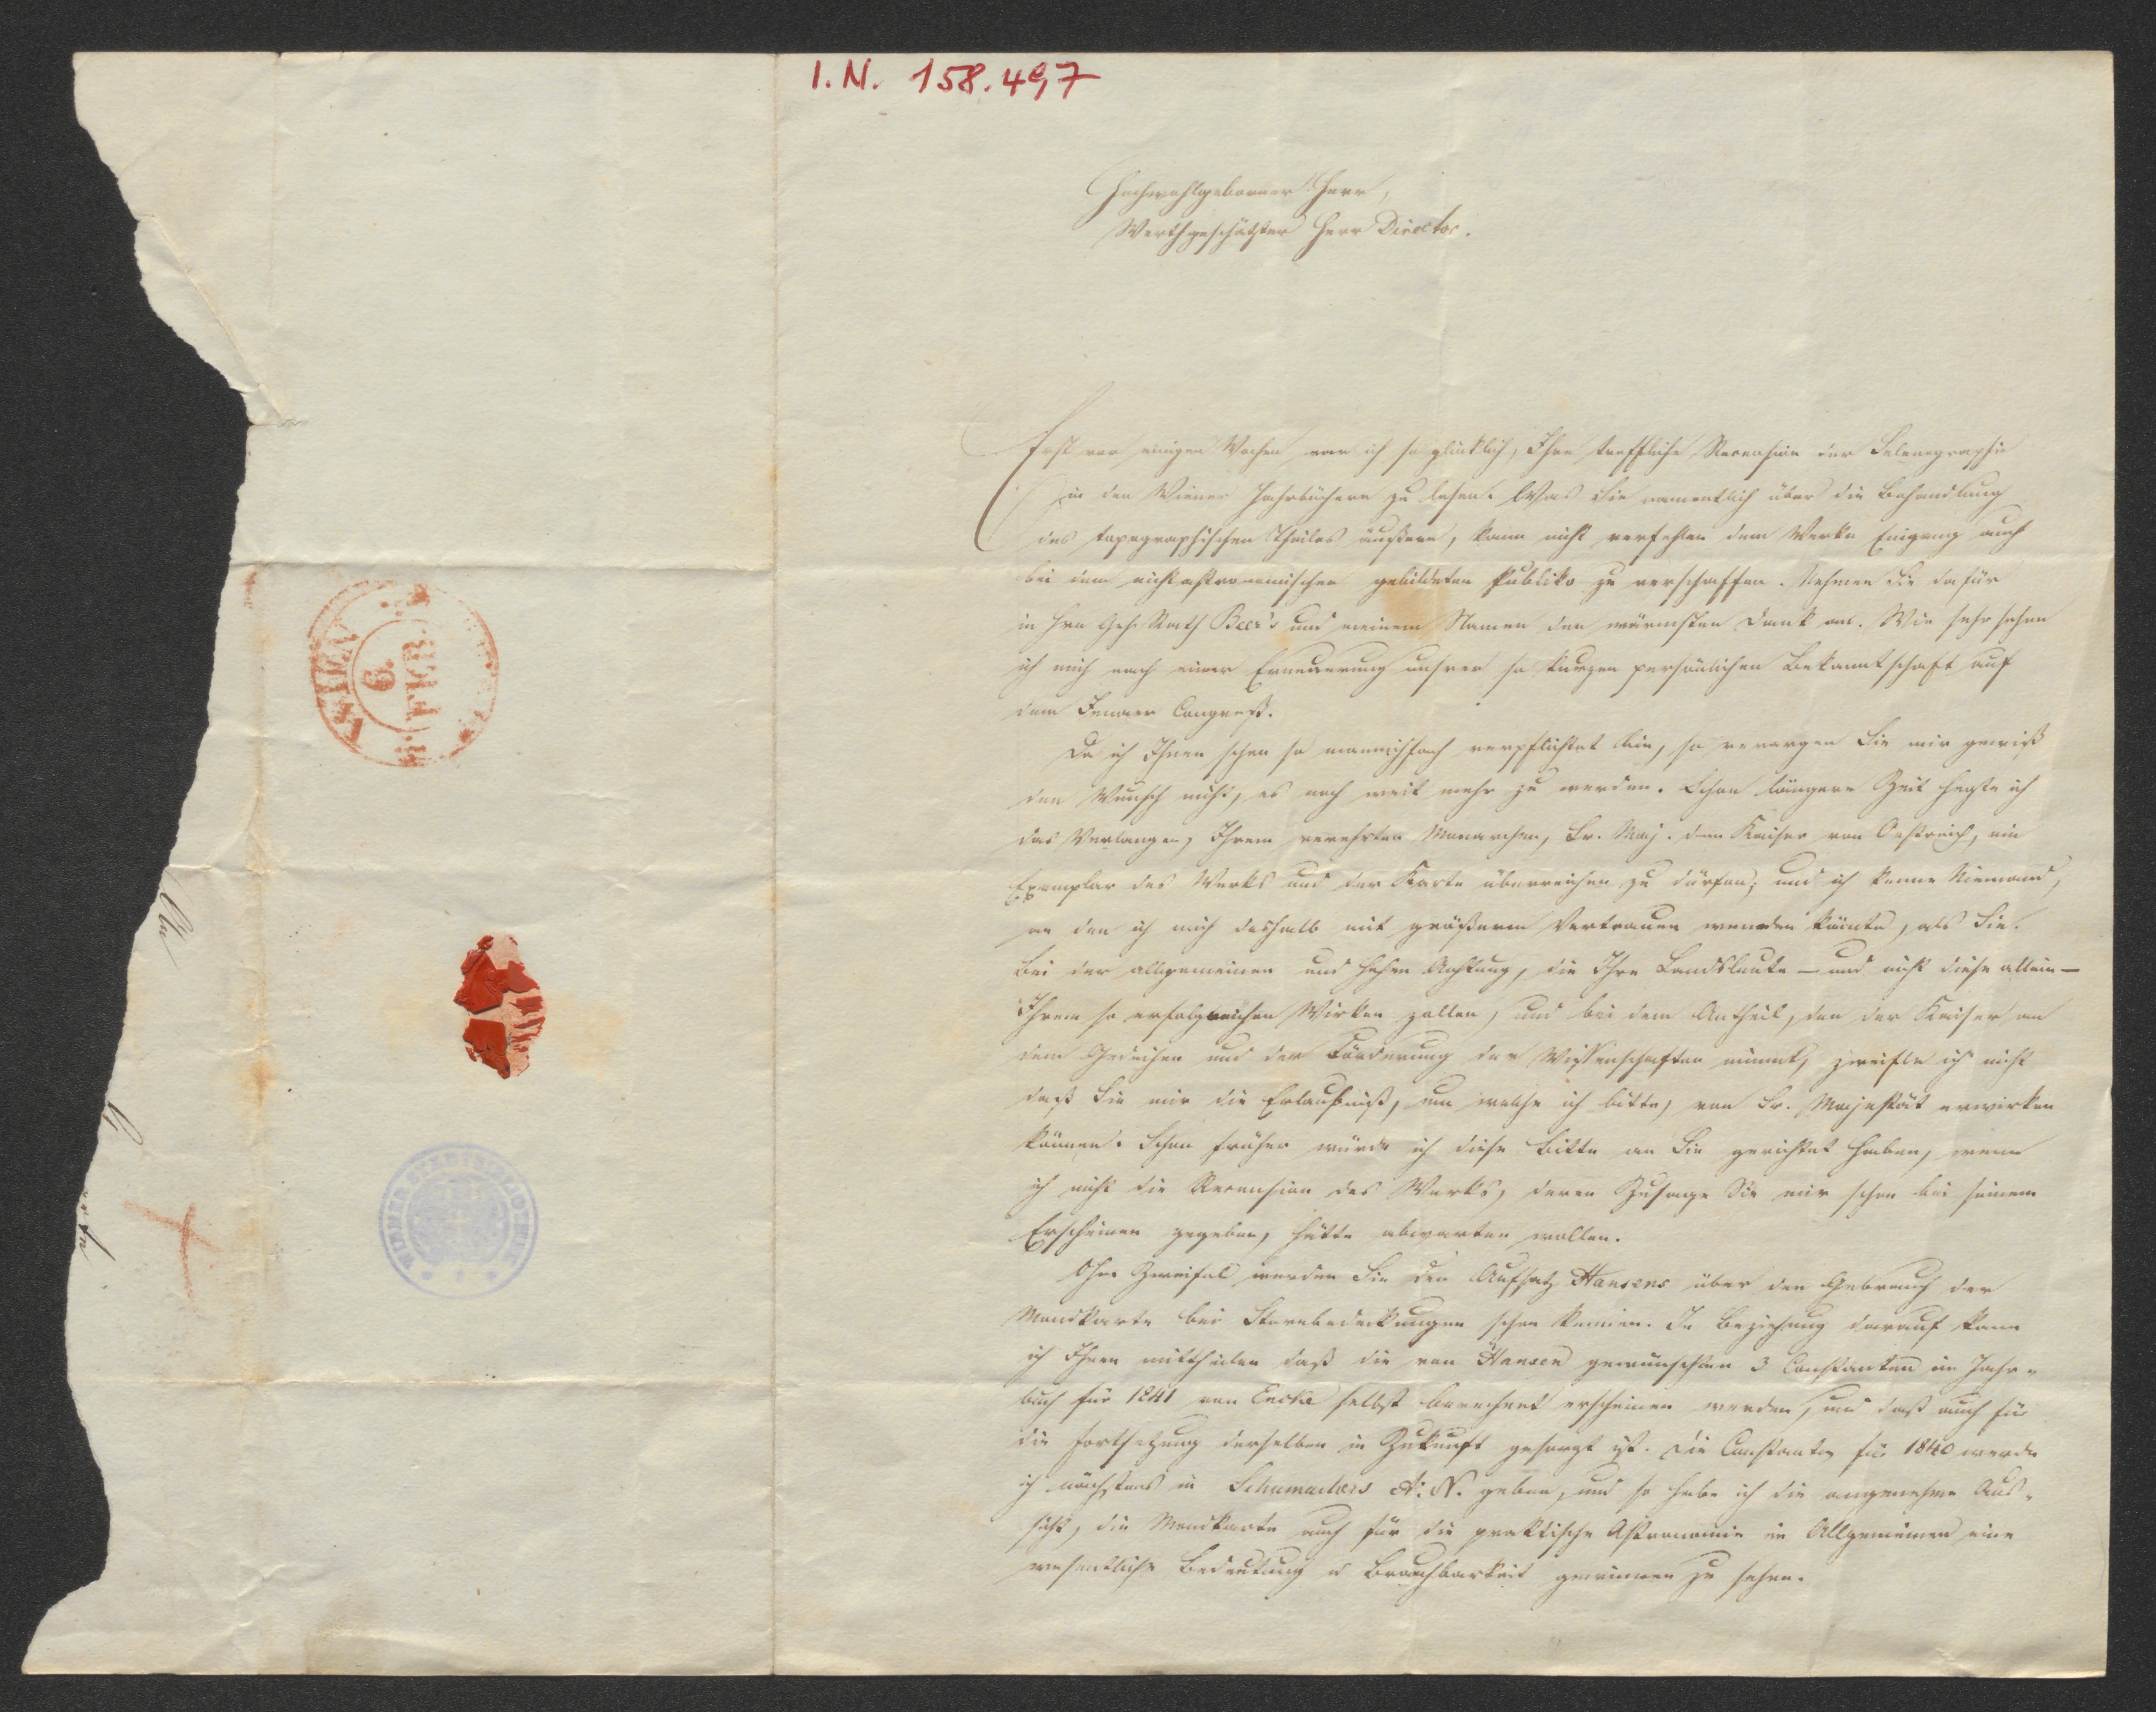 I.N. 158.497
Hochwohlgeborner Herr,
Werthgeschätzter Herr Director.
Erst vor einigen Wochen war ich so glücklich, Ihre treffliche Recension der Selenographie
in den Wiener Jahrbüchern zu lesen. Was Sie namentlich über die Behandlung
des topographischen Theiles äußern, kann nicht verfehlen dem Werke Eingang auch
bei dem nicht astronomischen gebildeten Publiko zu verschaffen. Nehmen Sie dafür
in Hrn Geh. Rath Beer's und meinem Namen den wärmsten Dank an. Wie sehr sehne
ich mich nach einer Erneuerung unsrer so kurzen persönlichen Bekanntschaft auf
dem Jenaer Congreß.
Da ich Ihnen schon so mannichfach verpflichtet bin, so verargen Sie mir gewiß
den Wunsch nicht, es noch weit mehr zu werden. Schon längere Zeit hegte ich
das Verlangen, Ihrem verehrten Monarchen, Sr. Maj. dem Kaiser von Oestreich, ein
Exemplar des Werks und der Karte überreichen zu dürfen; und ich kenne Niemand,
an den ich mich deshalb mit größerem Vertrauen wenden könnte, als Sie.
Bei der allgemeinen und hohen Achtung, die Ihre Landsleute – und nicht diese allein –
Ihrem so erfolgreichen Wirken zollen, und bei dem Antheil, den der Kaiser an
dem Gedeihen und der Förderung der Wissenschaften nimmt, zweifle ich nicht
daß Sie mir die Erlaubniß, um welche ich bitte, von Sr. Majestät erwirken
können. Schon früher würde ich diese Bitte an Sie gerichtet haben, wenn
ich nicht die Recension des Werks, deren Zusage Sie mir schon bei seinem
Erscheinen gegeben, hätte abwarten wollen.
Ohne Zweifel werden Sie den Aufsatz Hansens über den Gebrauch der
Mondkarte bei Sternbedeckungen schon kennen. In Beziehung darauf kann
ich Ihnen mittheilen daß die von Hansen gewünschten 3 Constanten im Jahr-
buch für 1841 von Encke selbst berechnet erscheinen werden, und daß auch für
die Fortsetzung derselben in Zukunft gesorgt ist. Die Constanten für 1840 werde
ich nächstens in Schumachers A. N. geben, und so habe ich die angenehme Aus-
sicht, die Mondkarte auch für die praktische Astronomie im Allgemeinen eine
wesentliche Bedeutung u Brauchbarkeit gewinnen zu sehen.
WIEN
6.
WIENER STADTBIBLIOTHEK